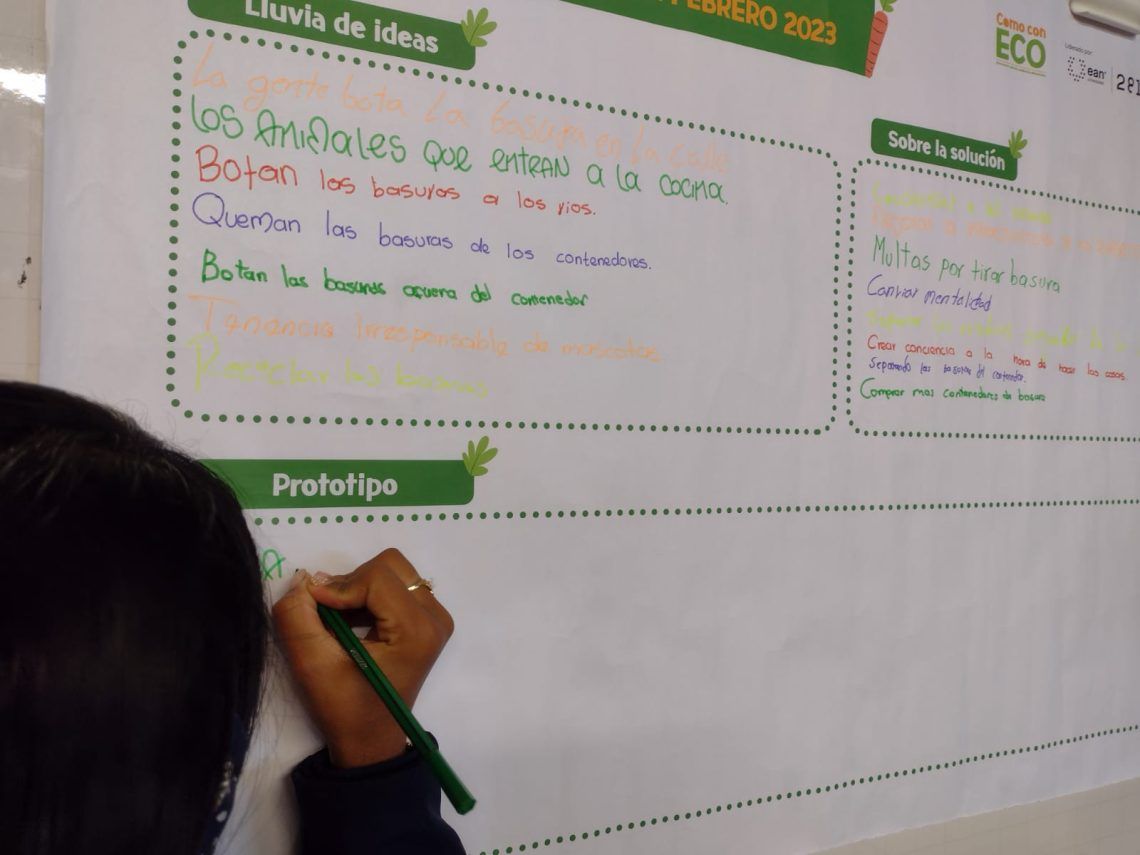 FEBRERO 2023
Como con
ECO
Liderado por
ean
Lluvia de ideas
La gente bota La basura en la calle
Los ANiMales que entran a la cocina.
Botan las basuras a los rios.
Queman las basuras de los contenedores.
Botan las basuras afuera del contenedor
Tenencia Irresponsable de mascotas
Reciclar las basuras
Sobre la solución
Multas por tirar basura
mentalidad
Crear conciencia a la hora de hacer las cosas.
Separando las basuras del contenedor.
Comprar mas contenedores de basura
Prototipo